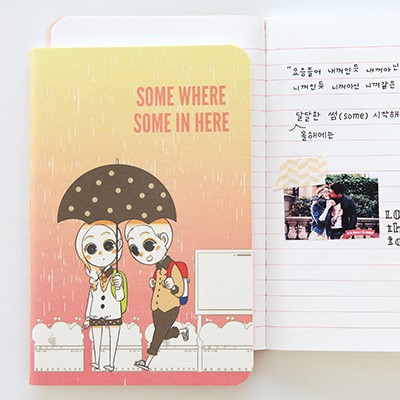 SOME WHERE
SOME IN HERE
"요즘들어 내꺼인듯 내꺼아닌
니꺼인듯 니꺼아닌 니꺼같은
달달한 썸(some) 시작해
올해에는